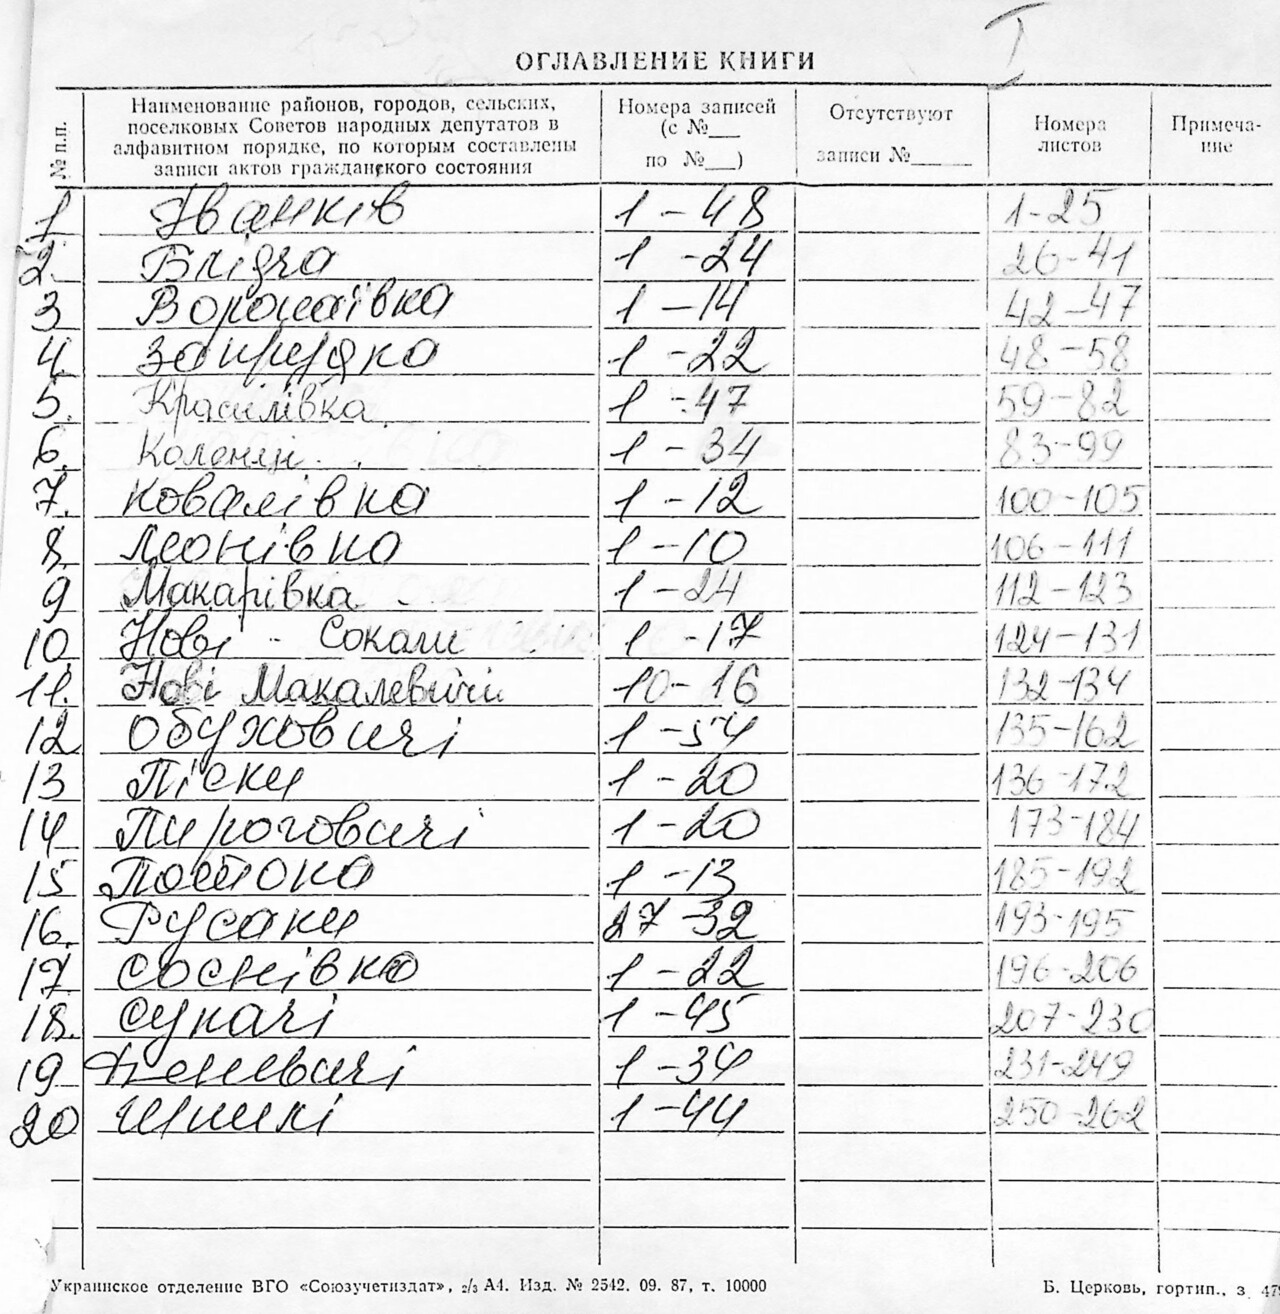 I
ОГЛАВЛЕНИЕ КНИГИ
№ п.п.
Наименование районов, городов, сельских, поселковых Советов народных депутатов в алфавитном порядке, по которым составлены записи актов гражданского состояния
Номера записей (с №___ по №___)
Отсутствуют записи №_____
Номера листов
Примеча-ние
1 Іванків 1-48 1-25
2. Блідча 1-24 26-41
3 Воропаївка 1-14 42-47
4 Запрудка 1-22 48-58
5. Красилівка 1-47 59-82
6. Коленці 1-34 83-99
7. Ковалівка 1-12 100-105
8 Леонівка 1-10 106-111
9 Макарівка 1-24 112-123
10 Нові - Сокали 1-17 124-131
11. Нові Макалевичі 10-16 132-134
12 Обуховичі 1-54 135-162
13 Піски 1-20 136-172
14 Пироговичі 1-20 173-184
15 Потоки 1-13 185-192
16. Русаки 27-32 193-195
17. Соснівка 1-22 196-206
18. Сукачі 1-45 207-230
19 1-34 231-249
20 Шпилі 1-44 250-262
Украинское отделение ВГО «Союзучетиздат», 2/3 А4. Изд. № 2542. 09. 87, т. 10000
Б. Церковь, гортип., з.